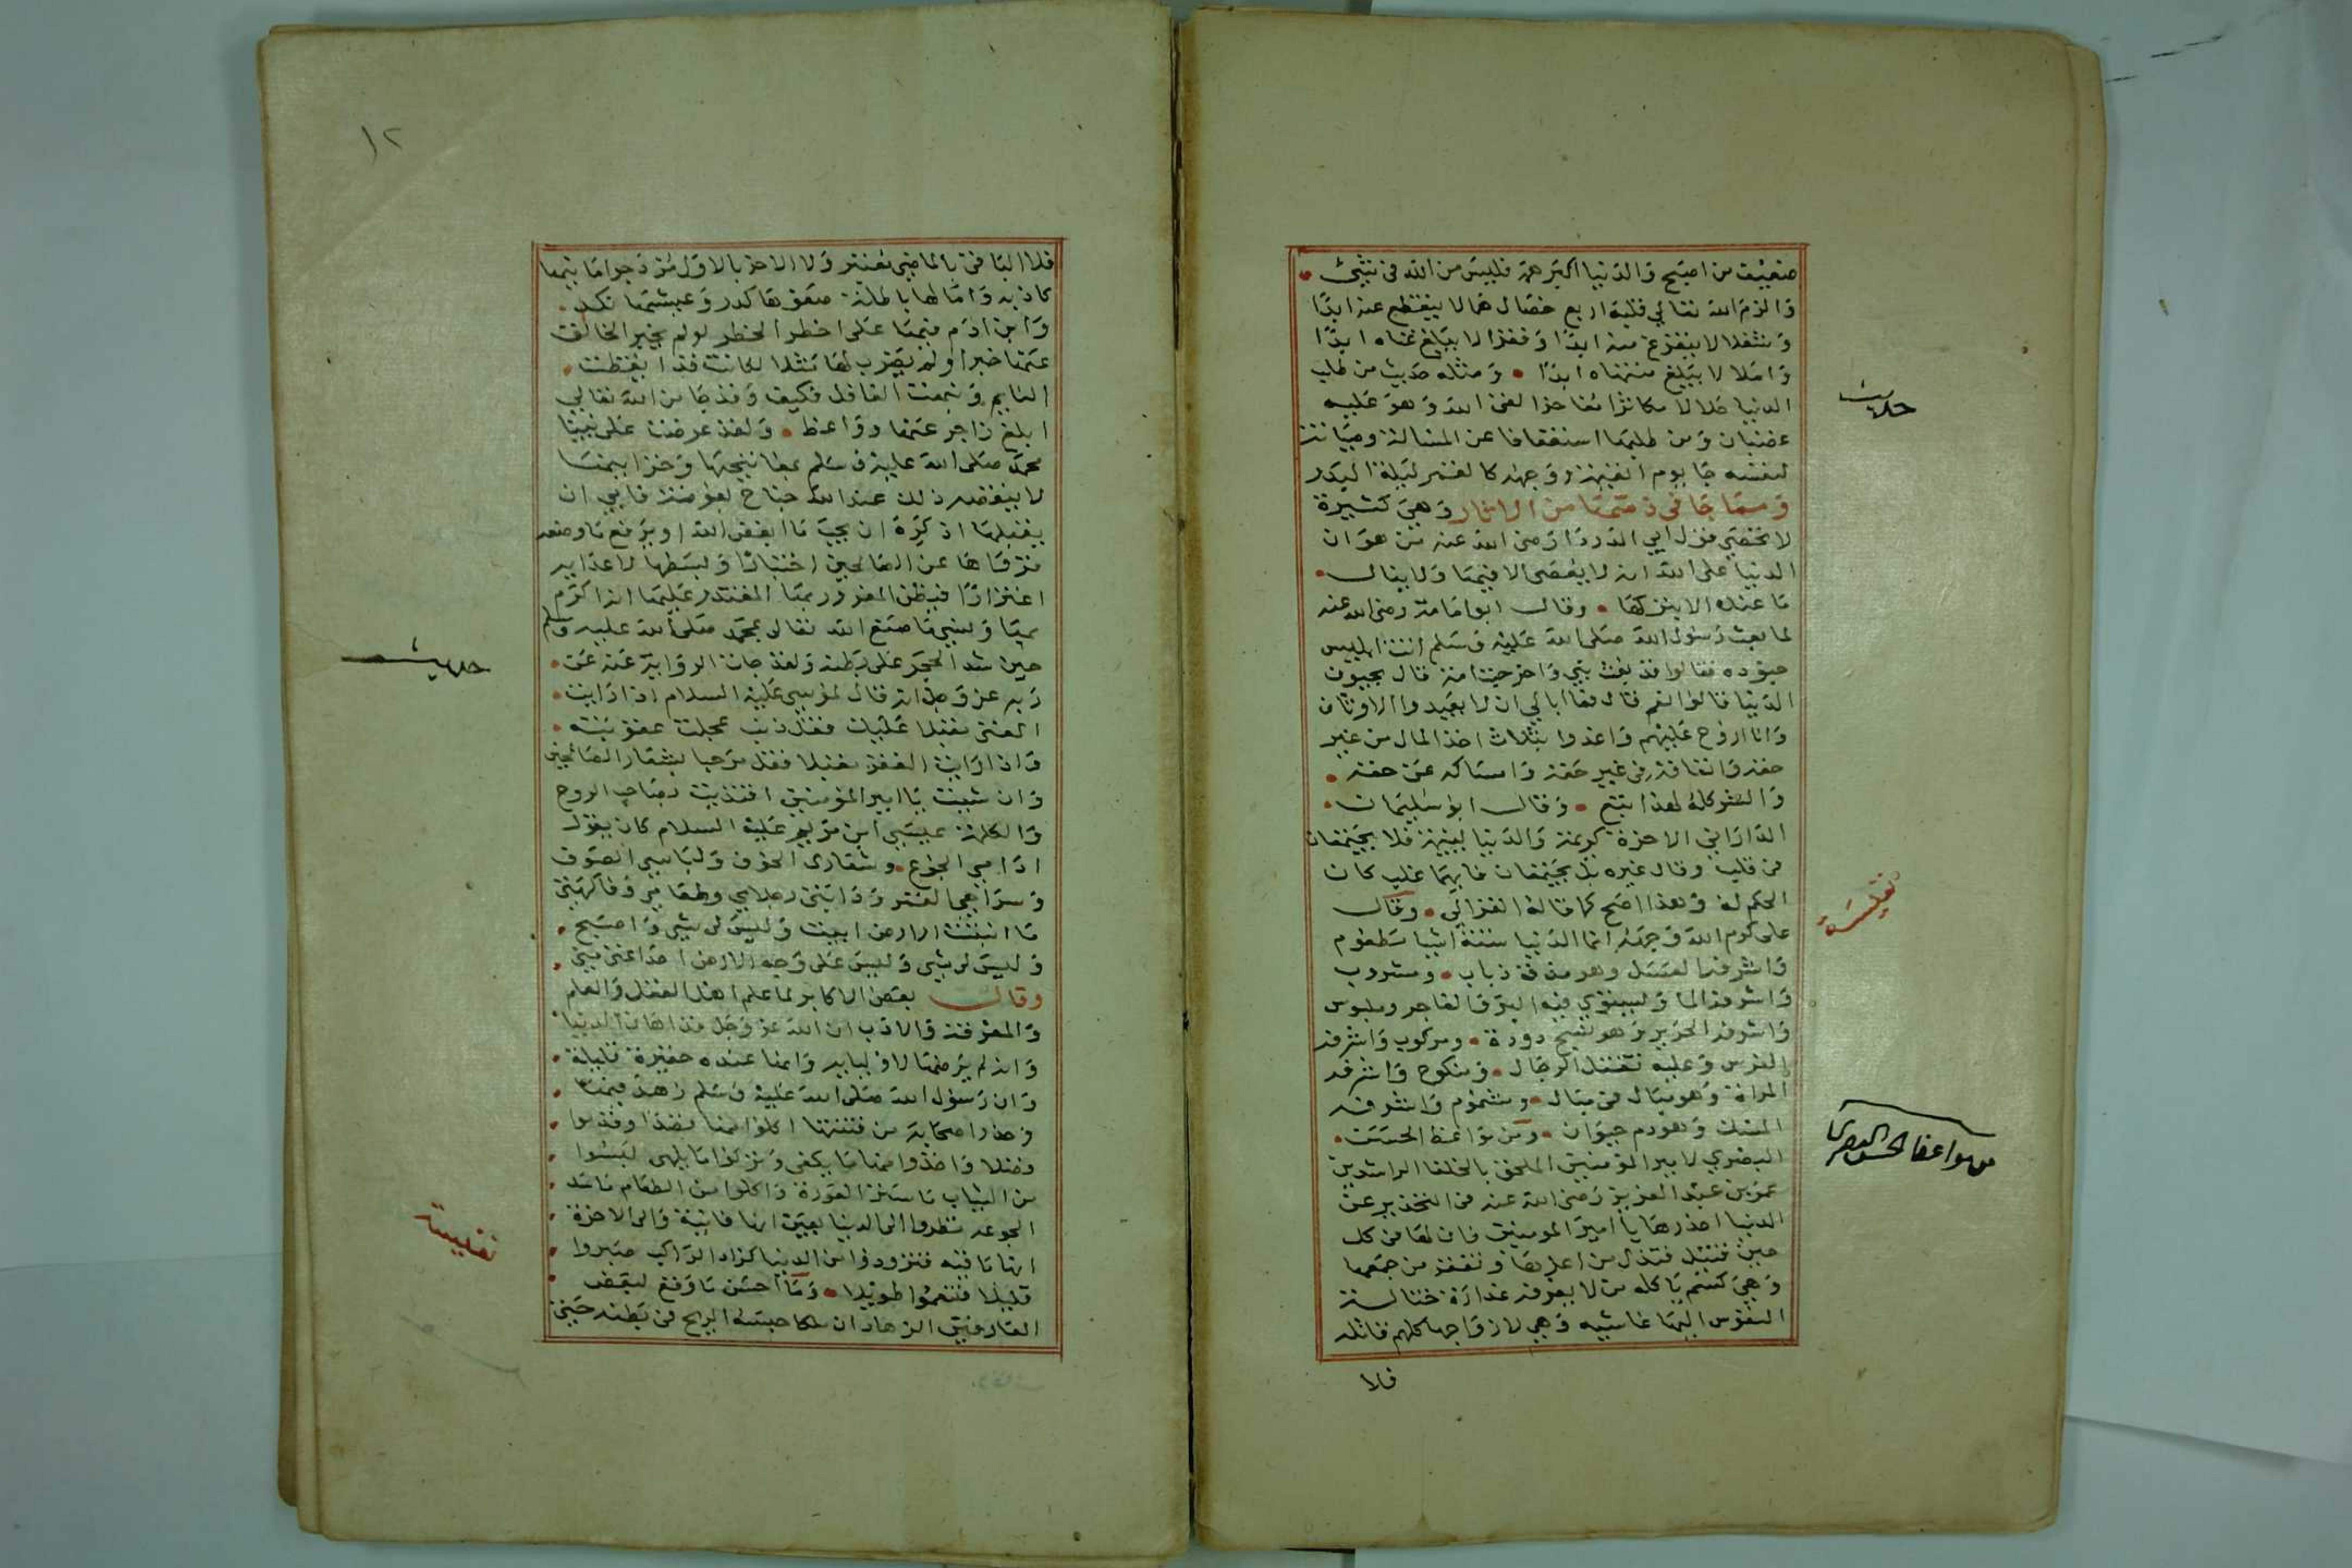 ضعيف من اصبح والدنيا اكبر همه فليس من الله في شيء
والزم الله تعالى قلبه اربع خصال هما لا ينقطع عنه ابدا
وشغلا لا يتفرغ منه ابدا وفقرا لا يبلغ غناه ابدا
واملا لا يبلغ منتهاه ابدا ومثله حديث من طلب
الدنيا حلالا مكاثرا مفاخرا لقى الله وهو عليه
غضبان ومن طلبها استعفافا عن المسالة وصيانة
لنفسه جا يوم القيمة ووجهه كالقمر ليلة البدر
ومما جا في ذمها من الاثار وهي كثيرة
لا تحصى قول ابي الدردا رضى الله عنه من هوان
الدنيا على الله انه لا يعصى الا فيها ولا ينال
ما عنده الا بتركها وقال ابو امامة رضى الله عنه
لما بعث رسول الله صلى الله عليه وسلم اتت ابليس
جنوده فقالوا قد بعث نبي واخرجت امة قال يحبون
الدنيا قالوا نعم قال فما ابالي ان لا يعبدوا الاوثان
وانا اروح عليهم واغدوا بثلاث اخذ المال من غير
حقه وانفاقه في غير حقه وامساكه عن حقه
والشر كله لهذا تبع وقال ابو سليمان
الداراني الاخرة كريمة والدنيا لئيمة فلا يجتمعان
في قلب وقال غيره بل يجتمعان فايهما غلب كان
الحكم له وهذا اصح كما قاله الغزالي وقال
على كرم الله وجهه انما الدنيا ستة اشيا مطعوم
واشرفه العسل وهو مذقة ذباب ومشروب
واشرفه الما ويستوى فيه البر والفاجر وملبوس
واشرفه الحرير وهو نسيج دودة ومركوب واشرفه
الفرس وعليه تقتتل الرجال ومنكوح واشرفه
المراة وهو مبال في مبال ومشموم واشرفه
المسك وهو دم حيوان ومن مواعظ الحسن
البصري لامير المومنين الملحق بالخلفا الراشدين
عمر بن عبد العزيز رضى الله عنه في التحذير عن
الدنيا احذرها يا امير المومنين فان لها في كل
حين قتيل فتذل من اعزها وتفقر من جمعها
وهي كسم ياكله من لا يعرفه غدارة ختالة
النفوس اليها عاشقه وهي لازواجها كلهم قاتله
فلا
حديث
نفيسة
من مواعظ الحسن البصرى
١٢
فلا الباقي بالماضى معتبر ولا الاخر بالاول مزدجر امانيها
كاذبه وامالها باطلة صفوها كدر وعيشها نكد
وابن ادم فيها على خطر الخطر لو لم يخبر الخالق
عنها خبرا ولم يضرب لها مثلا لكانت قد ايقظت
النايم ونبهت الغافل فكيف وقد جا من الله تعالى
ابلغ زاجر عنها وواعظ ولقد عرضت على نبينا
محمد صلى الله عليه وسلم بمفاتيحها وخزاينها
لا ينقصه ذلك عند الله جناح بعوضة فابي ان
يقبلها اذ كره ان يحب ما ابغض الله او يرفع ما وضعه
فزواها عن الصالحين اختبارا وبسطها لاعدايه
اغترارا فيظن المغرور بها المقتدر عليها انه اكرم
بها ونسي ما صنع الله تعالى بمحمد صلى الله عليه وسلم
حين شد الحجر على بطنه ولقد جات الرواية عنه عن
ربه عز وجل انه قال لموسي عليه السلام اذا رايت
الغنى مقبلا عليك فقل ذنب عجلت عقوبته
واذا رايت الفقر مقبلا فقل مرحبا بشعار الصالحين
وان شيت يا امير المومنين اقتديت بصاحب الروح
والكلمة عيسى ابن مريم عليه السلام كان يقول
ادامي الجوع وشعاري الخوف ولباسي الصوف
وسراجي القمر ودابتي رجلاي وطعامي وفاكهتي
ما انبتت الارض ابيت وليس لى شي واصبح
وليس لى شي وليس على وجه الارض احد اغنى منى
وقال بعض الاكابر لما علم اهل الفضل والعلم
والمعرفة والادب ان الله عز وجل قد اهان الدنيا
وانه لم يرضها لاوليايه وانها عنده حقيرة قليلة
وان رسول الله صلى الله عليه وسلم زهد فيها
وحذر اصحابه من فتنتها اكلوا منها قصدا وقدموا
فضلا واخذوا منها ما يكفى وتركوا ما يلهى لبسوا
من الثياب ما ستر العورة واكلوا من الطعام ما سد
الجوعه نظروا الى الدنيا بعين انها فانية والى الاخرة
انها باقيه فتزودوا من الدنيا كزاد الراكب صبروا
قليلا فتنعموا طويلا وما احسن ما وقع لبعض
العارفين الزهاد ان ملكا حبسه الريح في بطنه حتى
حديث
نفيسة